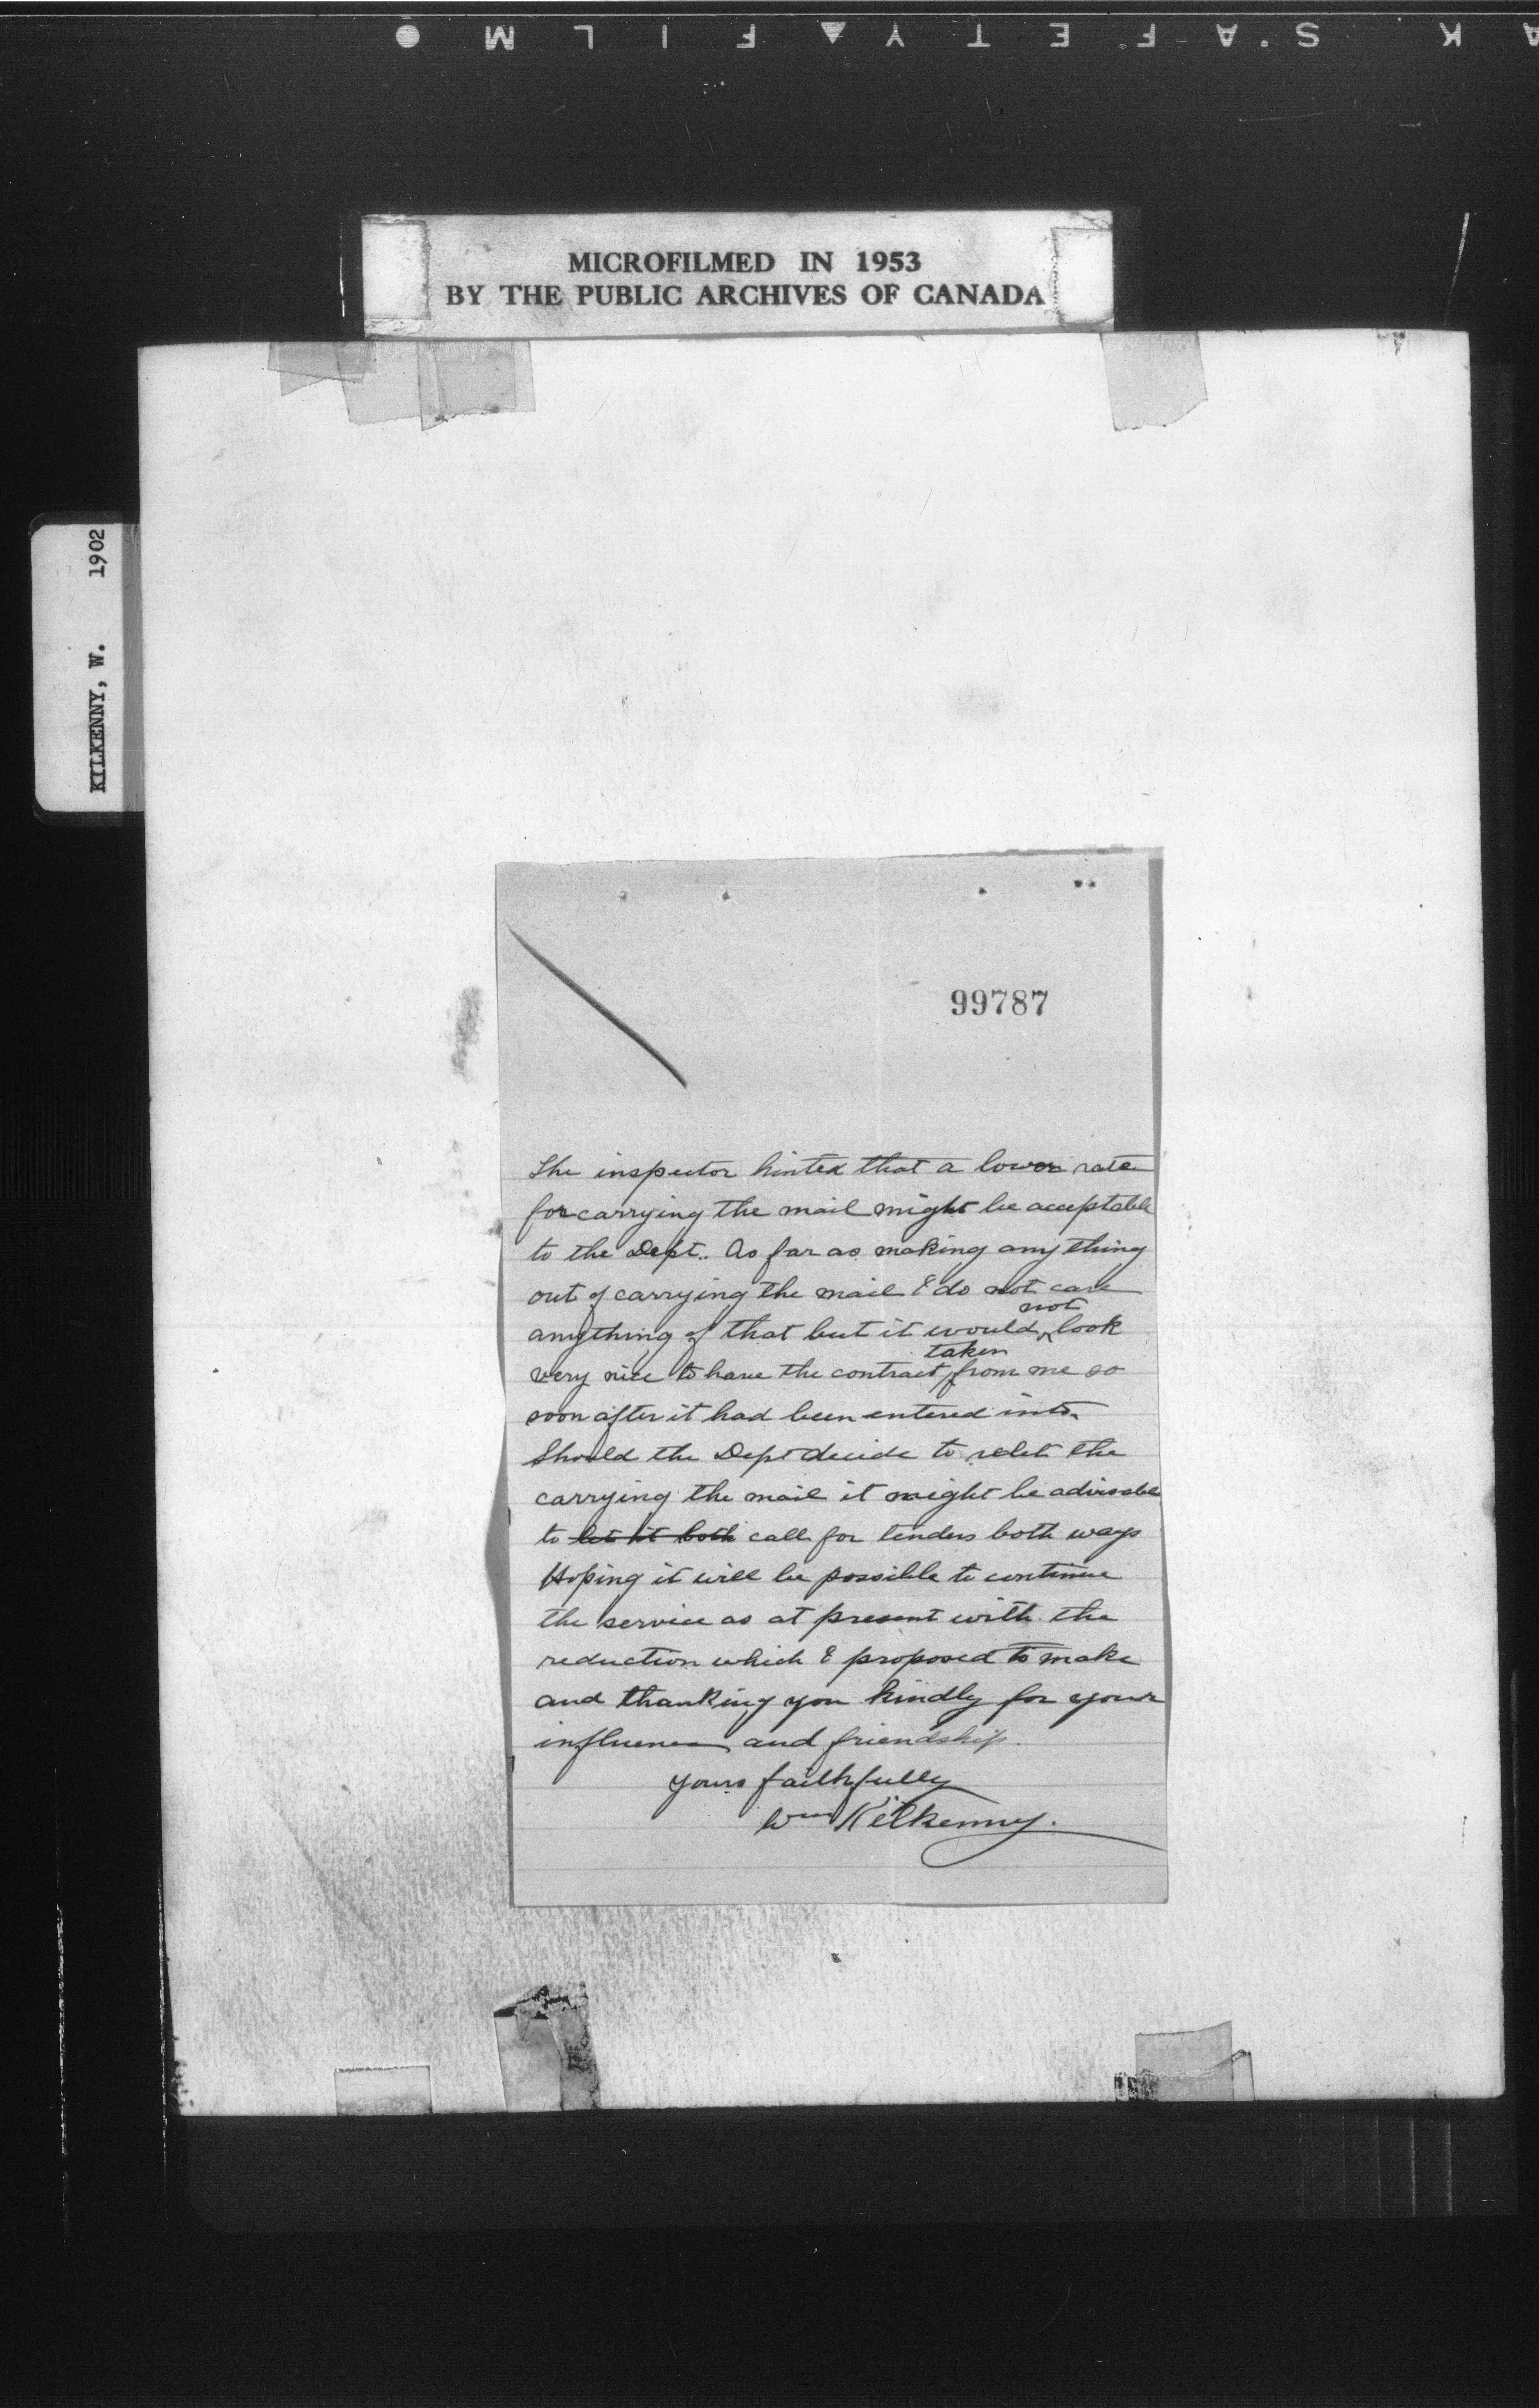 K S.A F E T Y ▲ F I L M ●
MICROFILMED IN 1953
BY THE PUBLIC ARCHIVES OF CANADA
KILKENNY, W. 1902
99787
The inspector hinted that a lower rate
for carrying the mail might be acceptable
to the Dept.. As far as making any thing
out of carrying the mail I do not care
anything of that but it would not look
very nice to have the contract taken from me so
soon after it had been entered into.
Should the Dept decide to relet the
carrying the mail it might be advisable
to let it both call for tenders both ways
Hoping it will be possible to continue
the service as at present with the
reduction which I proposed to make
and thanking you kindly for your
influence and friendship.
yours faithfully
Wm Kilkenny.